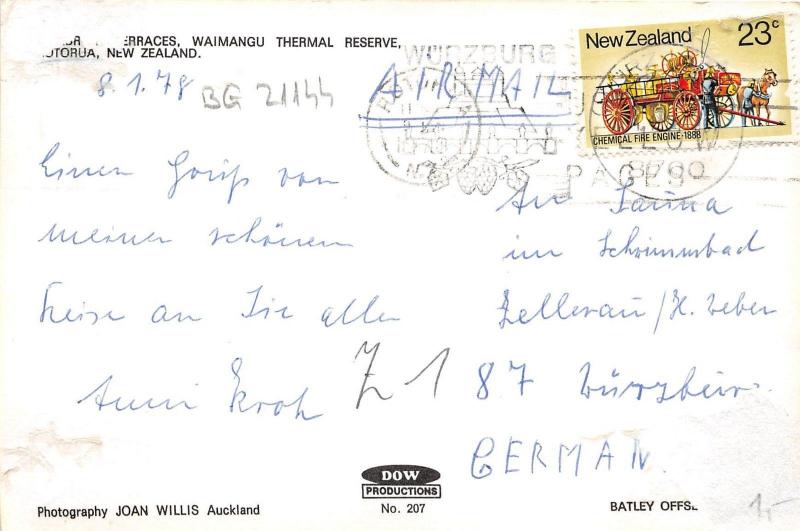 ERRACES, WAIMANGU THERMAL RESERVE,
OTORUA, NEW ZEALAND.
8.1.78
BG 21144
AIRMAIL
WÜRZBURG
New Zealand 23c
CHEMICAL FIRE ENGINE-1888
YELLOW
PAGES
Einen Gruß von
meiner schönen
Reise an Sie alle
Anni Kroh
Z 1
An Sauna
im Schwimmbad
Zellerau/H. Weber
87 Würzburg
GERMAN
DOW
PRODUCTIONS
No. 207
Photography JOAN WILLIS Auckland
BATLEY OFFSE
1,-